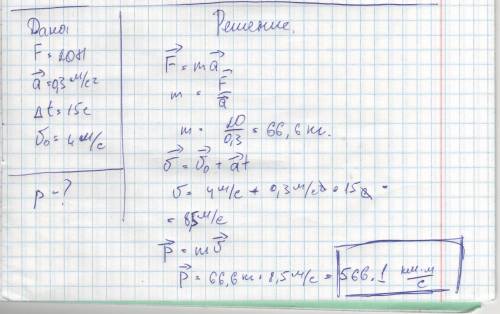 Дано:
F = 20Н
a⃗ = 0,3 м/с²
Δt = 15с
υ₀ = 4 м/с
p - ?
Решение.
F⃗ = ma⃗
m = F⃗/a⃗
m = 20/0,3 = 66,6 кг.
υ⃗ = υ⃗₀ + a⃗t
υ = 4 м/с + 0,3 м/с² · 15с =
= 8,5 м/с
p⃗ = mυ⃗
p⃗ = 66,6 кг · 8,5 м/с = 566.1 кг·м/с